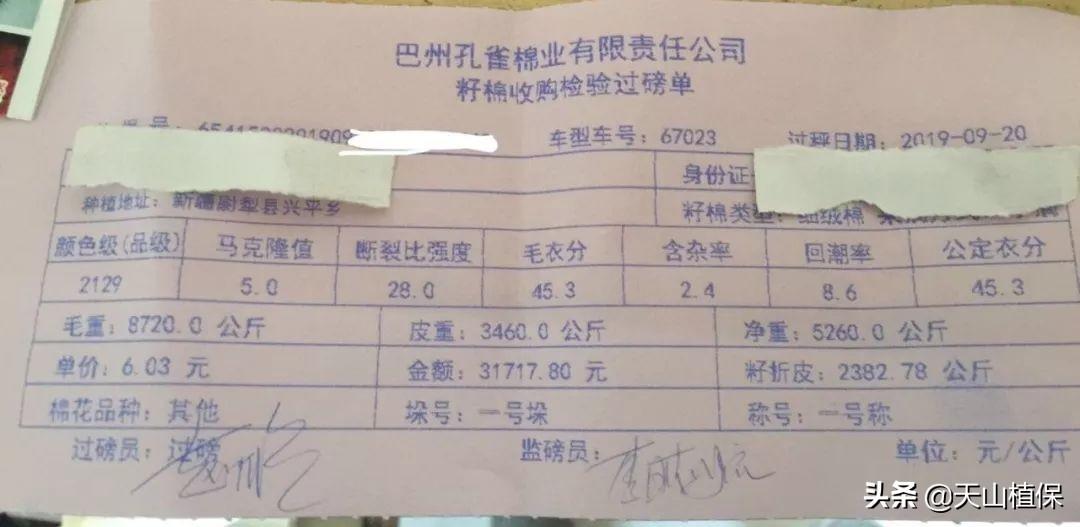 巴州孔雀棉业有限责任公司
籽棉收购检验过磅单
车型车号：67023 过秤日期：2019-09-20
身份证
种植地址：新疆尉犁县兴平乡 籽棉类型：细绒棉
颜色级(品级) 马克隆值 断裂比强度 毛衣分 含杂率 回潮率 公定衣分
2129 5.0 28.0 45.3 2.4 8.6 45.3
毛重：8720.0 公斤 皮重：3460.0 公斤 净重：5260.0 公斤
单价：6.03 元 金额：31717.80 元 籽折皮：2382.78 公斤
棉花品种：其他 垛号：一号垛 称号：一号称
过磅员：过磅 监磅员： 单位：元/公斤
头条 @天山植保